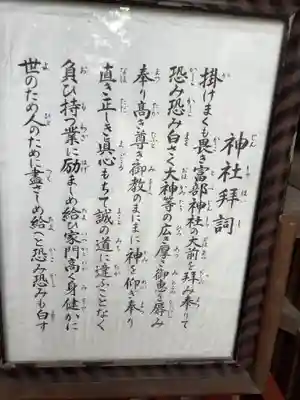 神社拝詞
掛けまくも畏き富部神社の大前を拝み奉りて
恐み恐み白さく大神等の広き厚き御恵を辱み
奉り高き尊き御教のまにまに神を仰ぎ奉り
直き正しき真心もちて誠の道に違ふことなく
負ひ持つ業に励ましめ給ひ家門高く身健かに
世のため人のために盡さしめ給へと恐み恐みも白す